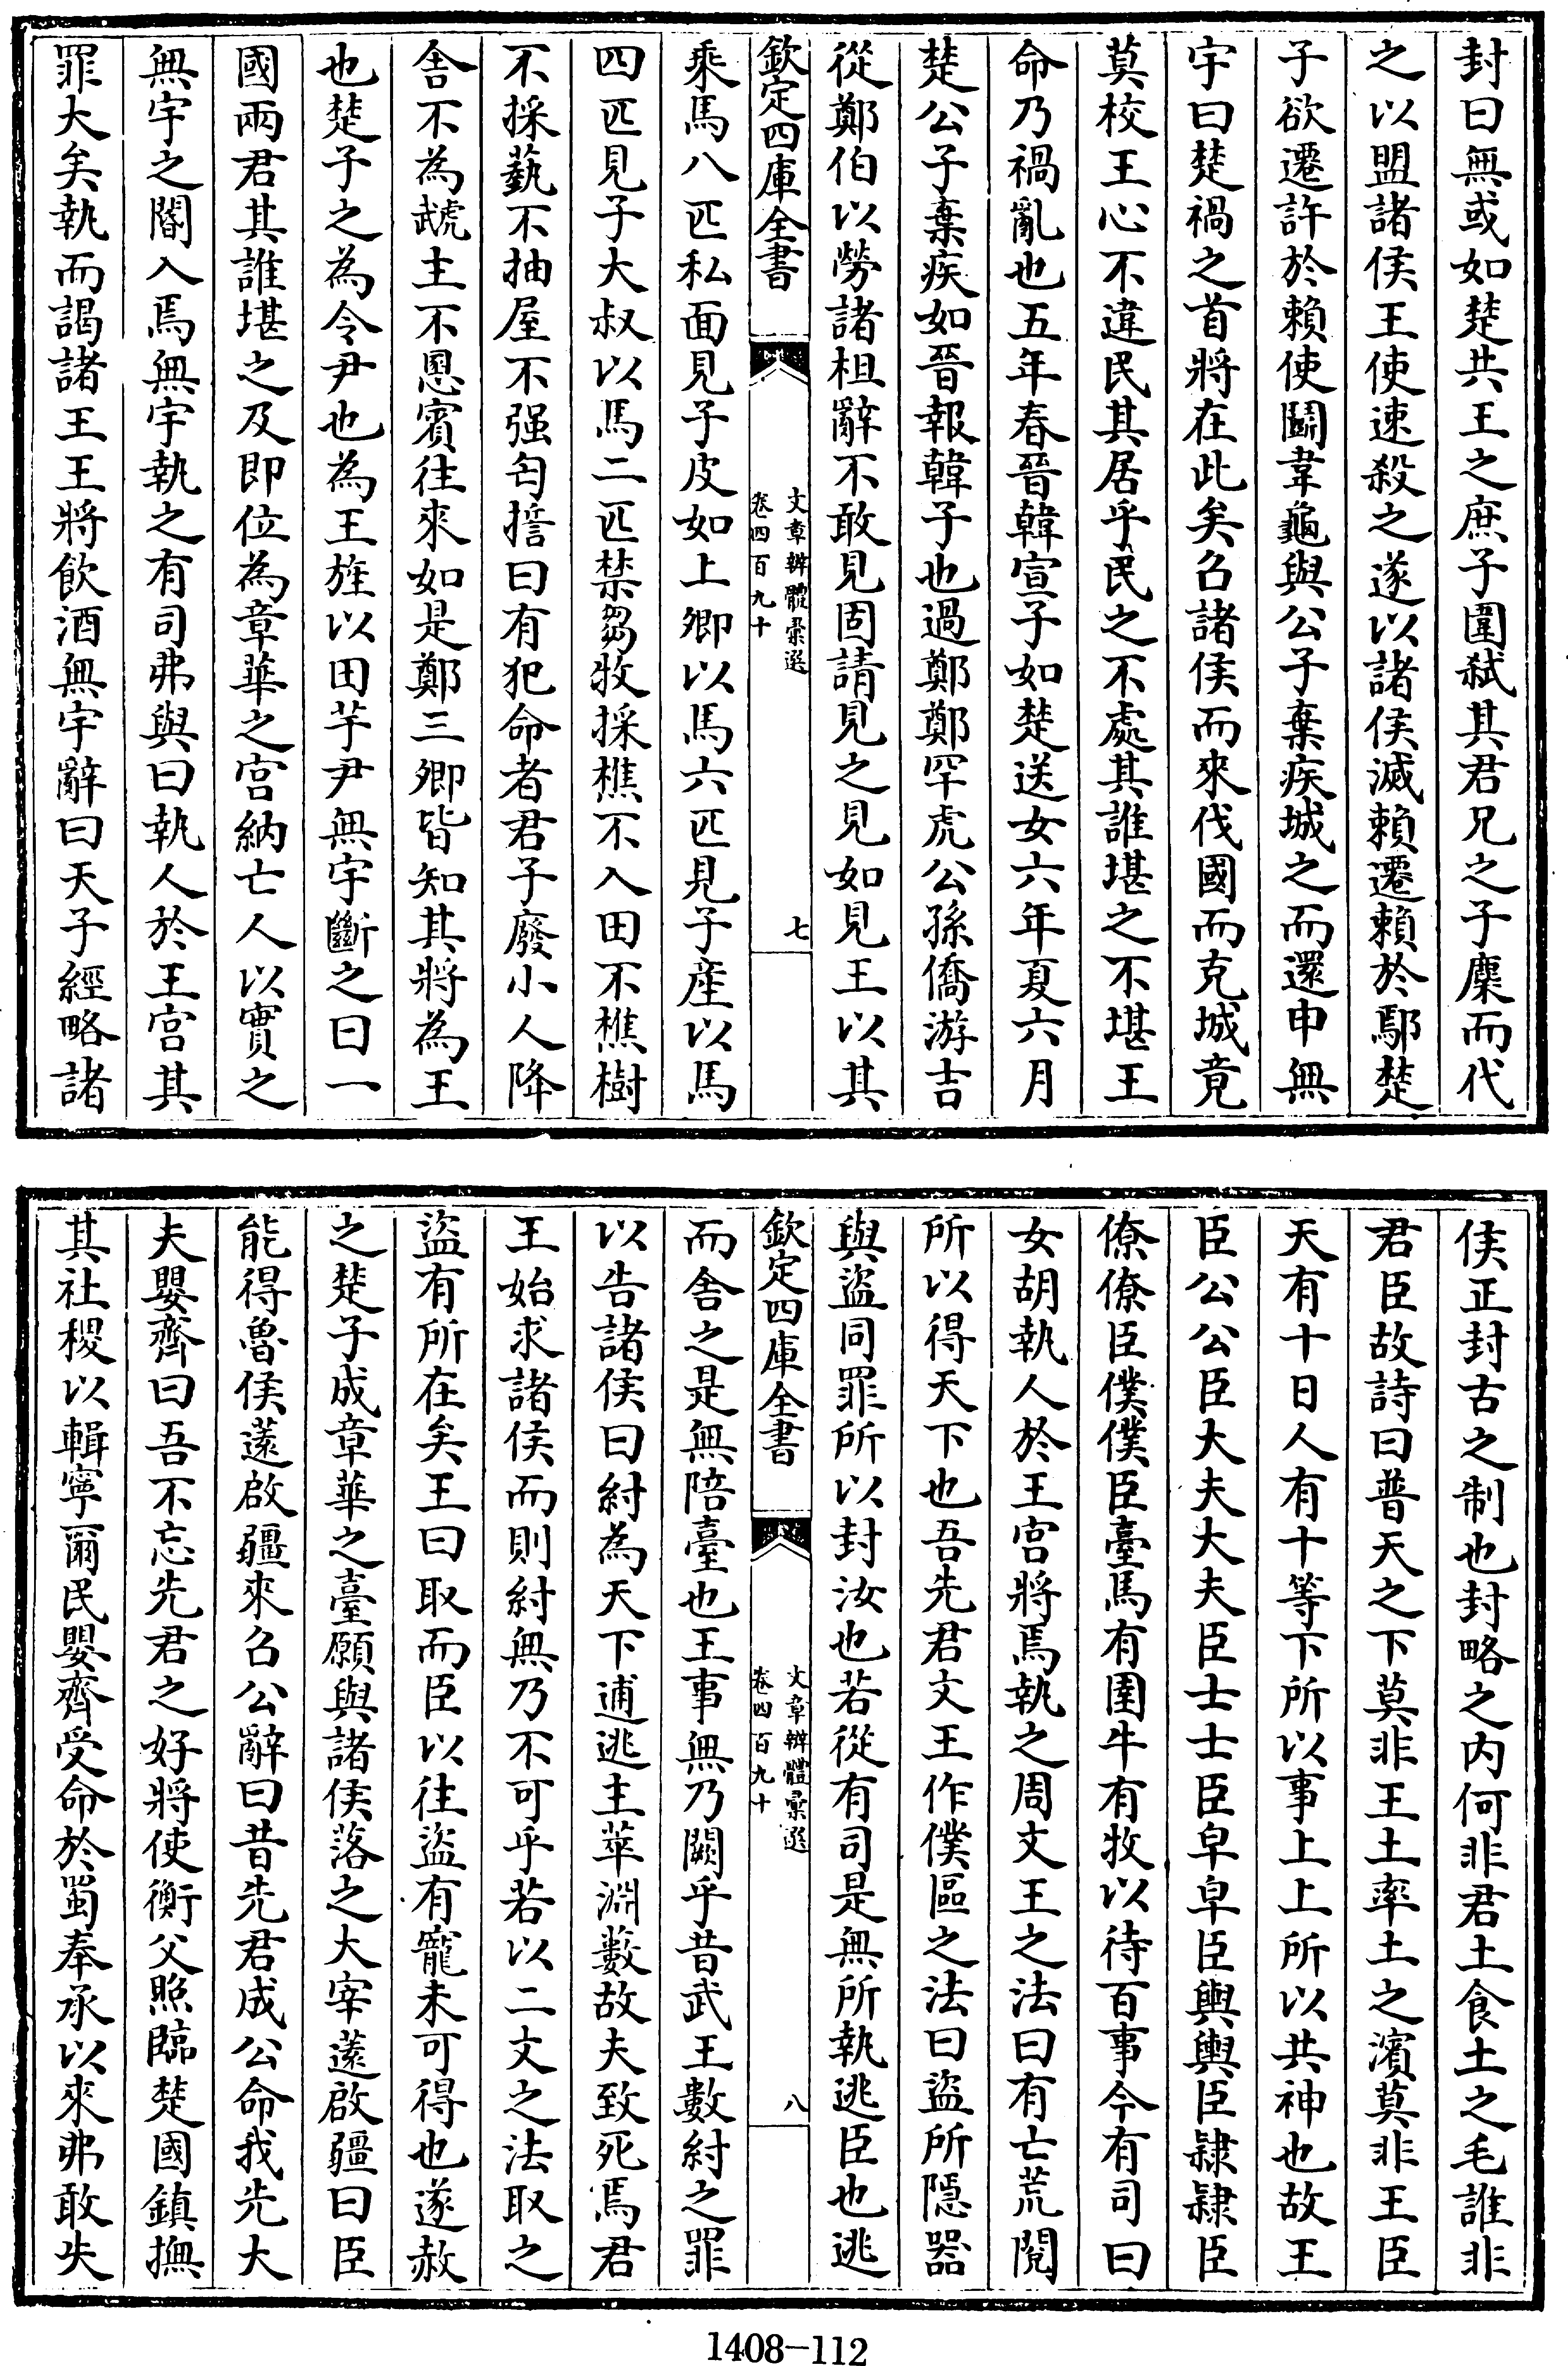 封曰無或如楚共王之庶子圍弑其君兄之子麇而代
之以盟諸侯王使速殺之遂以諸侯滅賴遷賴於鄢楚
子欲遷許於賴使鬬韋龜與公子棄疾城之而還申無
宇曰楚禍之首將在此矣召諸侯而來伐國而克城竟
莫校王心不違民其居乎民之不處其誰堪之不堪王
命乃禍亂也五年春晉韓宣子如楚送女六年夏六月
楚公子棄疾如晉報韓子也過鄭鄭罕虎公孫僑游吉
從鄭伯以勞諸柤辭不敢見固請見之見如見王以其
欽定四庫全書
文章辨體彙選
卷四百九十
七
乘馬八匹私面見子皮如上卿以馬六匹見子產以馬
四匹見子大叔以馬二匹禁芻牧採樵不入田不樵樹
不採蓺不抽屋不强匄誓曰有犯命者君子廢小人降
舍不為虣主不慁賓往來如是鄭三卿皆知其將為王
也楚子之為令尹也為王旌以田芋尹無宇斷之曰一
國兩君其誰堪之及即位為章華之宮納亡人以實之
無宇之閽入焉無宇執之有司弗與曰執人於王宮其
罪大矣執而謁諸王王將飲酒無宇辭曰天子經略諸
侯正封古之制也封略之內何非君土食土之毛誰非
君臣故詩曰普天之下莫非王土率土之濱莫非王臣
天有十日人有十等下所以事上上所以共神也故王
臣公公臣大夫大夫臣士士臣皁皁臣輿輿臣隸隸臣
僚僚臣僕僕臣臺馬有圉牛有牧以待百事今有司曰
女胡執人於王宮將焉執之周文王之法曰有亡荒閱
所以得天下也吾先君文王作僕區之法曰盜所隱器
與盜同罪所以封汝也若從有司是無所執逃臣也逃
欽定四庫全書
文章辨體彙選
卷四百九十
八
而舍之是無陪臺也王事無乃闕乎昔武王數紂之罪
以告諸侯曰紂為天下逋逃主萃淵藪故夫致死焉君
王始求諸侯而則紂無乃不可乎若以二文之法取之
盜有所在矣王曰取而臣以往盜有寵未可得也遂赦
之楚子成章華之臺願與諸侯落之大宰薳啟疆曰臣
能得魯侯薳啟疆來召公辭曰昔先君成公命我先大
夫嬰齊曰吾不忘先君之好將使衡父照臨楚國鎮撫
其社稷以輯寧爾民嬰齊受命於蜀奉承以來弗敢失
1408-112